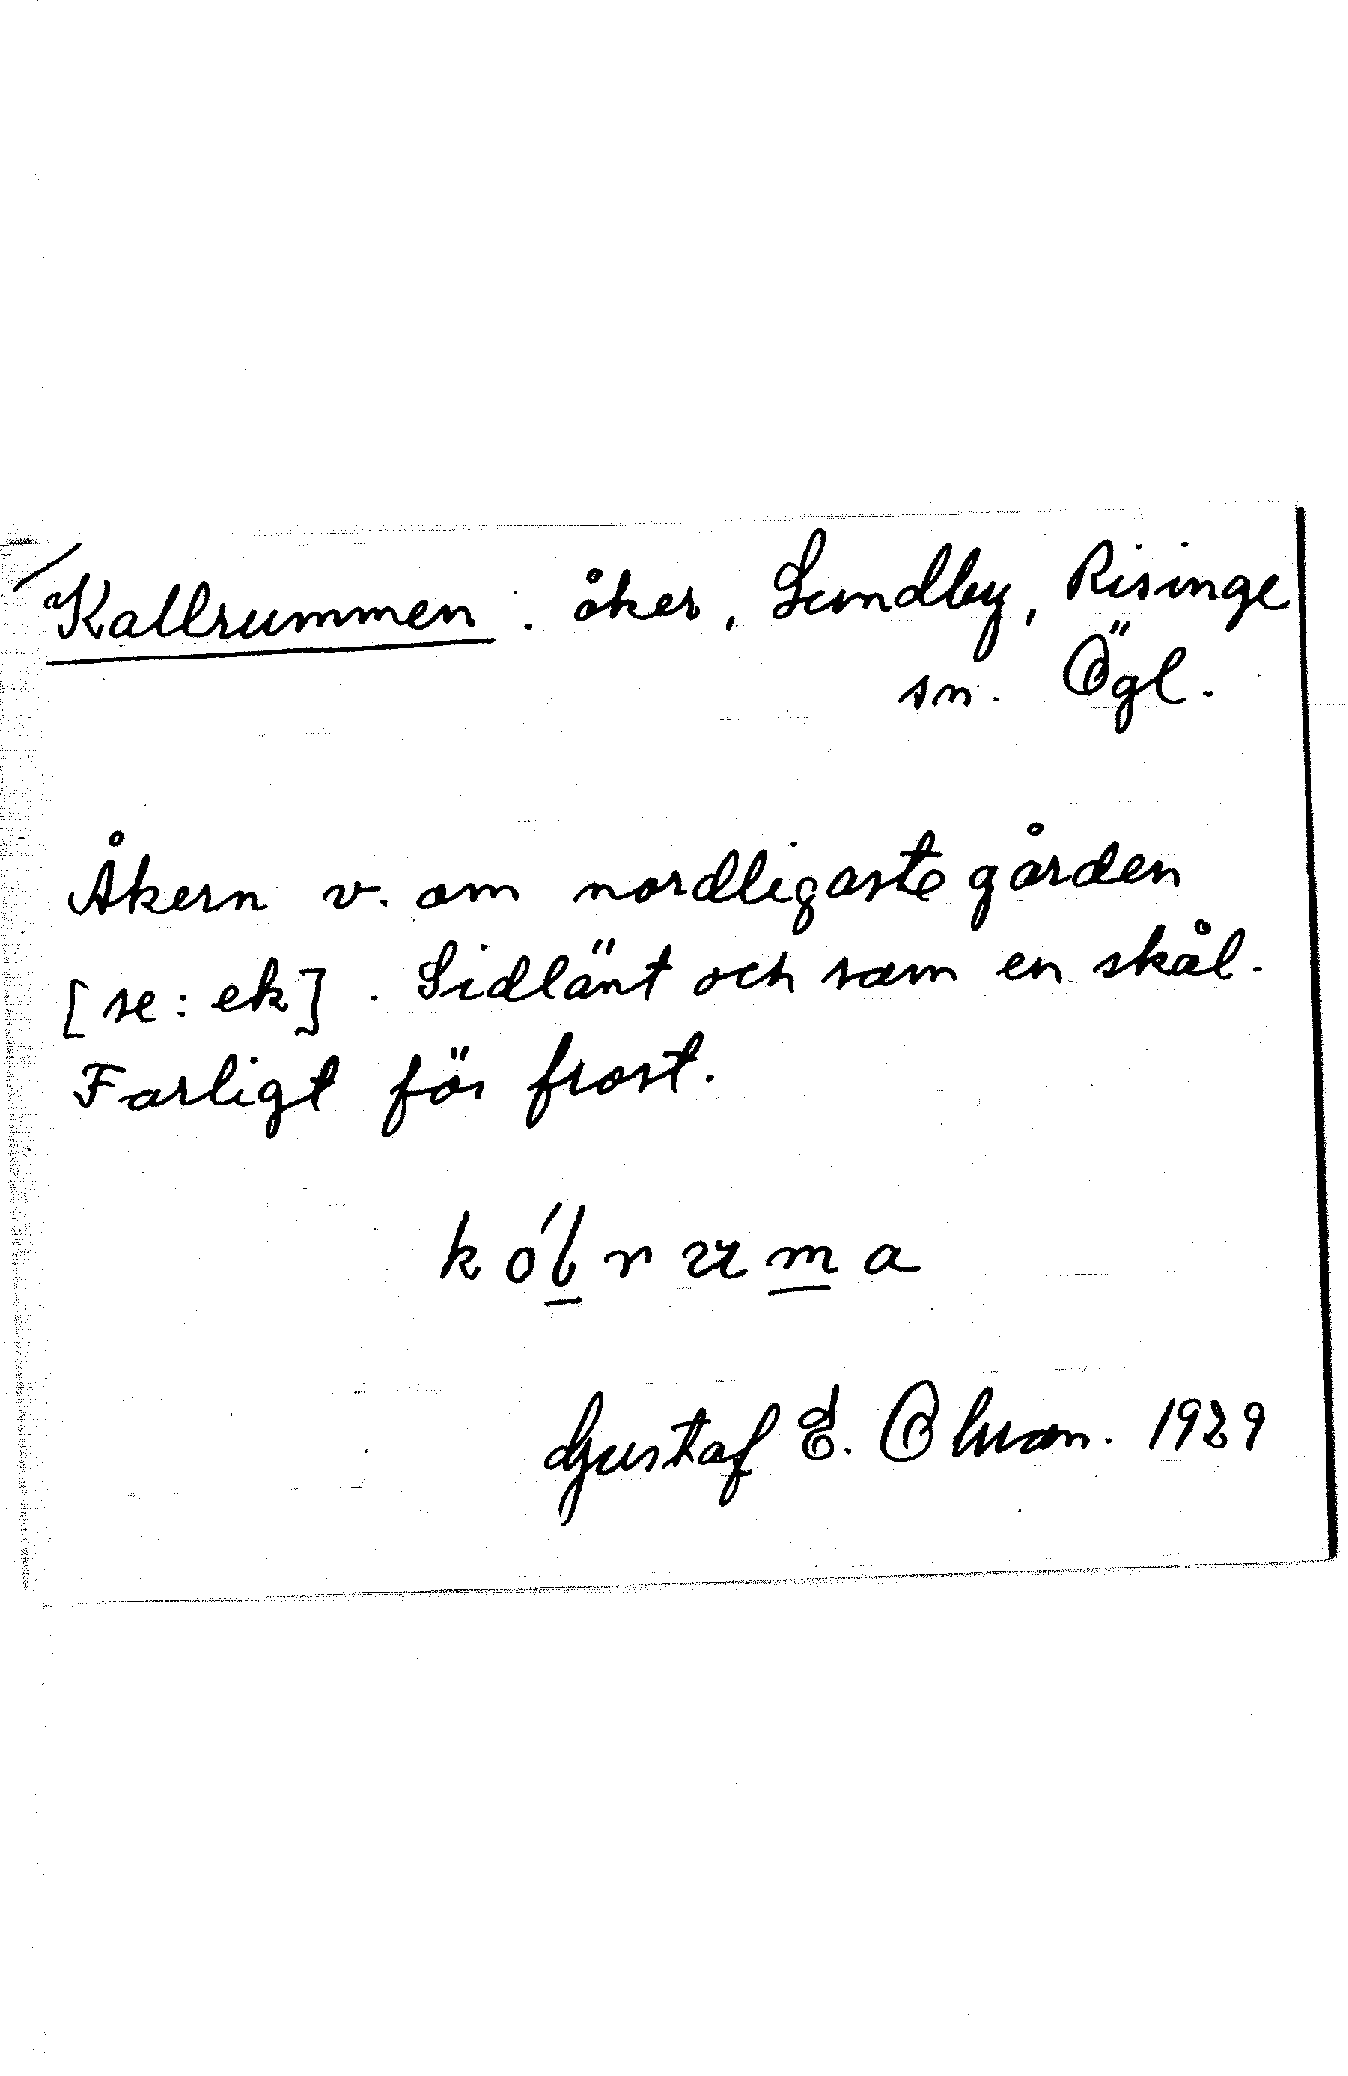 Kallrummen. åker, Lundby, Risinge
sn. Ögl.
Åkern v. om nordligaste gården
[se: ek]. Sidlänt och som en skål.
Farligt för frost.
Gustaf E. Ohman. 1929